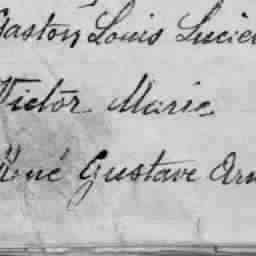 Gaston Louis Lucien
Victor Marie
René Gustave